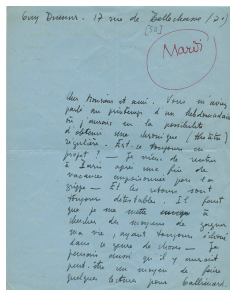 Guy Dumur. 17 rue de Bellechasse (7e)
[50]
Mardi
Cher Monsieur et ami. Vous m'aviez
parlé au printemps d'un hebdomadaire
où j'aurais eu la possibilité
d'obtenir une chronique (théâtre)
régulière. Est-ce toujours en
projet? — Je viens de rentrer
à Paris après une fin de
vacances empoisonnée par la
grippe — Et les retours sont
toujours détestables. Il faut
que je me mette à
chercher des moyens de gagner
ma vie, ayant toujours
dans ce genre de choses — Je
pensais aussi qu'il y aurait
peut-être un moyen de faire
quelques lectures pour Gallimard.